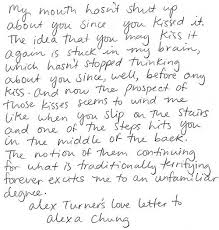 My mouth hasn't shut up
about you since you kissed it.
The idea that you may kiss it
again is stuck in my brain,
which hasn't stopped thinking
about you since, well, before any
kiss. and now the prospect of
those kisses seems to wind me
like when you slip on the stairs
and one of the steps hits you
in the middle of the back.
The notion of them continuing
for what is traditionally terrifying
forever excites me to an unfamiliar
degree.
alex Turner's love letter to
alexa Chung